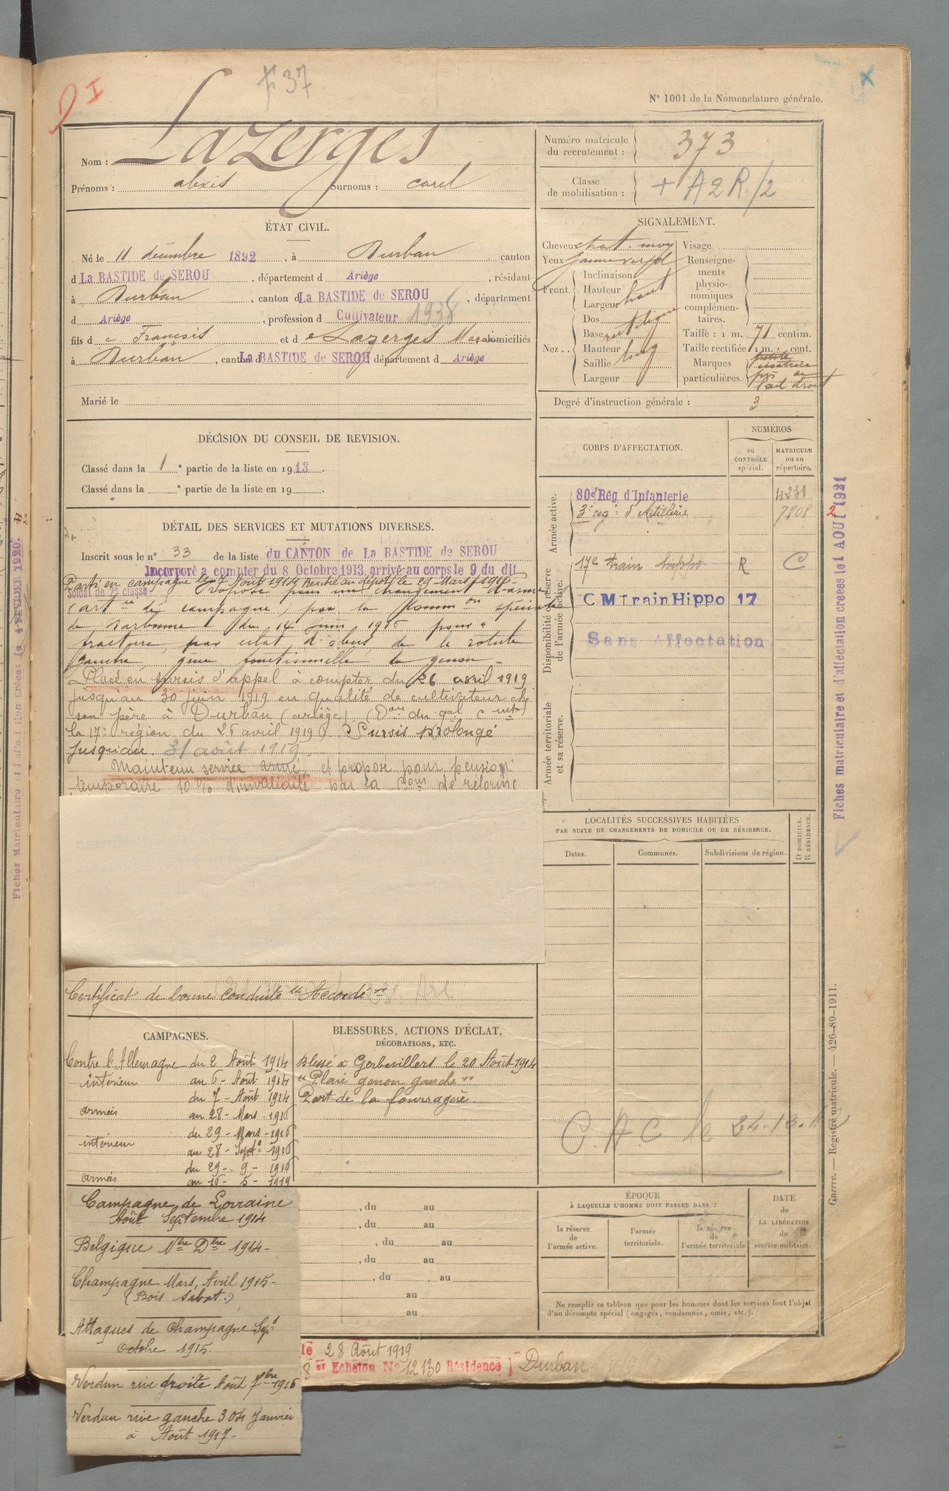 F 37
N° 1001 de la Nomenclature générale.
Nom : Lazerges
Prénoms : alexis Surnoms : carel
Numéro matricule du recrutement : 373
Classe de mobilisation : + A2R/2
ÉTAT CIVIL.
Né le 11 décembre 1892, à Durban canton
d La BASTIDE de SEROU, département d Ariège, résidant
à Durban, canton d La BASTIDE de SEROU, département
d Ariège, profession de Cultivateur 1938
fils de François et de Lazerges domiciliés
à Durban, canton La BASTIDE de SEROU département d Ariège
Marié le
SIGNALEMENT.
Cheveux chat. moy
Yeux
Front.
Inclinaison
Hauteur
Largeur haut
Nez..
Dos
Base rectiligne
Hauteur
Saillie long
Largeur
Visage
Renseignements physionomiques complémentaires.
Taille : 1 m. 71 centim.
Taille rectifiée 1 m. cent.
Marques particulières.
Degré d'instruction générale : 3
DÉCISION DU CONSEIL DE REVISION.
Classé dans la 1e partie de la liste en 1913.
Classé dans la e partie de la liste en 19
CORPS D'AFFECTATION.
NUMÉROS
au CONTRÔLE spécial.
MATRICULE ou au répertoire.
Armée active.
80e Rég d'Infanterie 4231
3e rég. d'Artillerie
Disponibilité et réserve de l'armée active.
17e train hippo R C
CM train Hippo 17
Sans Affectation
Armée territoriale et sa réserve.
DÉTAIL DES SERVICES ET MUTATIONS DIVERSES.
Inscrit sous le n° 33 de la liste du CANTON de La BASTIDE de SEROU
Incorporé à compter du 8 Octobre 1913, arrivé au corps le 9 du dit
Soldat de 2e classe
Parti en campagne le 7 Août 1914 Rentré au dépôt le 29 Mars 1916
Proposé pour un changement d'arme
(art ie de campagne) par la Comm on spéciale
de Narbonne du 14 juin 1916 pour "
fracture par éclat d'obus de la rotule
gauche, gêne fonctionnelle du genou "
Placé en sursis d'appel à compter du 26 avril 1919
jusqu'au 30 juin 1919 en qualité de cultivateur chez
son père à Durban (ariège) (Don du gal Ct
la 17e région du 25 avril 1919) Sursis prolongé
jusqu'au 31 août 1919.
Maintenu service armé et proposé pour pension
temporaire 10% d'invalidité par la Com de réforme
Certificat de bonne conduite "Accordé"
LOCALITÉS SUCCESSIVES HABITÉES
PAR SUITE DE CHANGEMENTS DE DOMICILE OU DE RÉSIDENCE.
Dates. Communes. Subdivisions de région.
D DOMICILE. R RÉSIDENCE.
CAMPAGNES.
Contre l'Allemagne du 2 Août 1914
intérieur au 6 - Août 1914
du 7 - Août 1914
armées au 28 - Mars - 1916
du 29 - Mars - 1916
intérieur au 28 - Sept - 1916
du 29 - 9 - 1916
armées au 16 - 5 - 1919
BLESSURES, ACTIONS D'ÉCLAT, DÉCORATIONS, ETC.
Blessé à Gerbevillers le 20 Août 1914
"Plaie genou gauche"
Port de la fourragère
C.A.C le
Campagne de Lorraine
Août Septembre 1914
Belgique Nbre Dbre 1914-
Champagne Mars, Avril 1915-
(Bois Sabot.)
Attaques de Champagne Sept
Octobre 1915.
Verdun rive droite Août 1916
Verdun rive gauche 304 Janvier
à Août 1917-
, du au
, du au
, du au
, du au
, du au
au
au
ÉPOQUE
À LAQUELLE L'HOMME DOIT PASSER DANS :
la réserve de l'armée active.
l'armée territoriale.
la réserve de l'armée territoriale
DATE de LA LIBÉRATION du service militaire.
Ne remplir ce tableau que pour les hommes dont les services font l'objet d'un décompte spécial (engagés, condamnés, omis, etc.).
28 Août 1919
8 er Echelon N° 12130 Résidence } Durban
Guerre. — Registre matricule. — 426-89-1911.
Fiches matriculaire et d'affectation créées le 1 AOUT 1921
Fiches Matriculaire et d'affectation créées le 4 FEVRIER 1920.